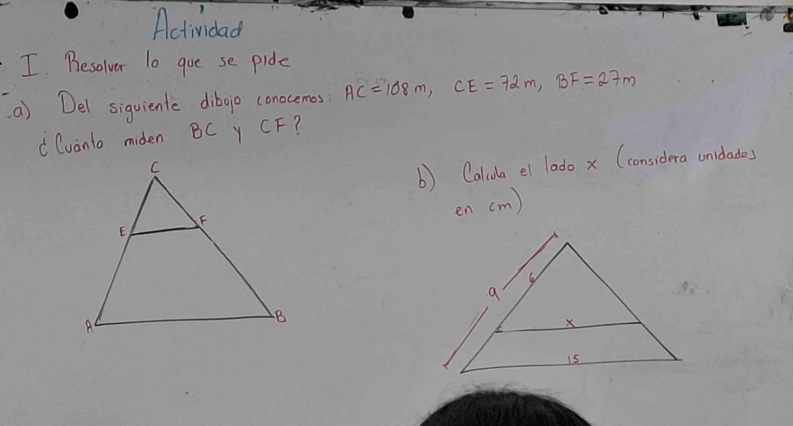 Actividad
I. Resolver lo que se pide
a) Del siguiente dibujo conocemos: AC=108m, CE=72m, BF=27m
¿Cuánto miden BC y CF?
C
E F
A B
b) Calcula el lado x (considera unidades
en cm)
9 6
x
15